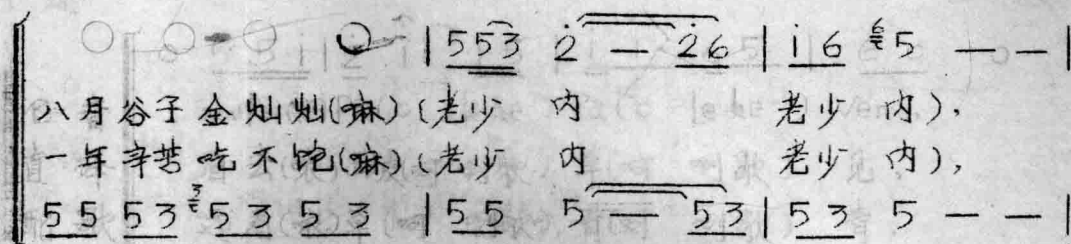 ○ ○ ○ ○ | 5 5 3 2̇ — 2̇ 6 | i̇ 6 ⁶5 — — |
八月谷子金灿灿(嘛)(老少 内 老少 内),
一年辛苦吃不饱(嘛)(老少 内 老少 内),
5 5 5 3 ³5 3 5 3 | 5 5 5 — 5 3 | 5 3 5 — — |